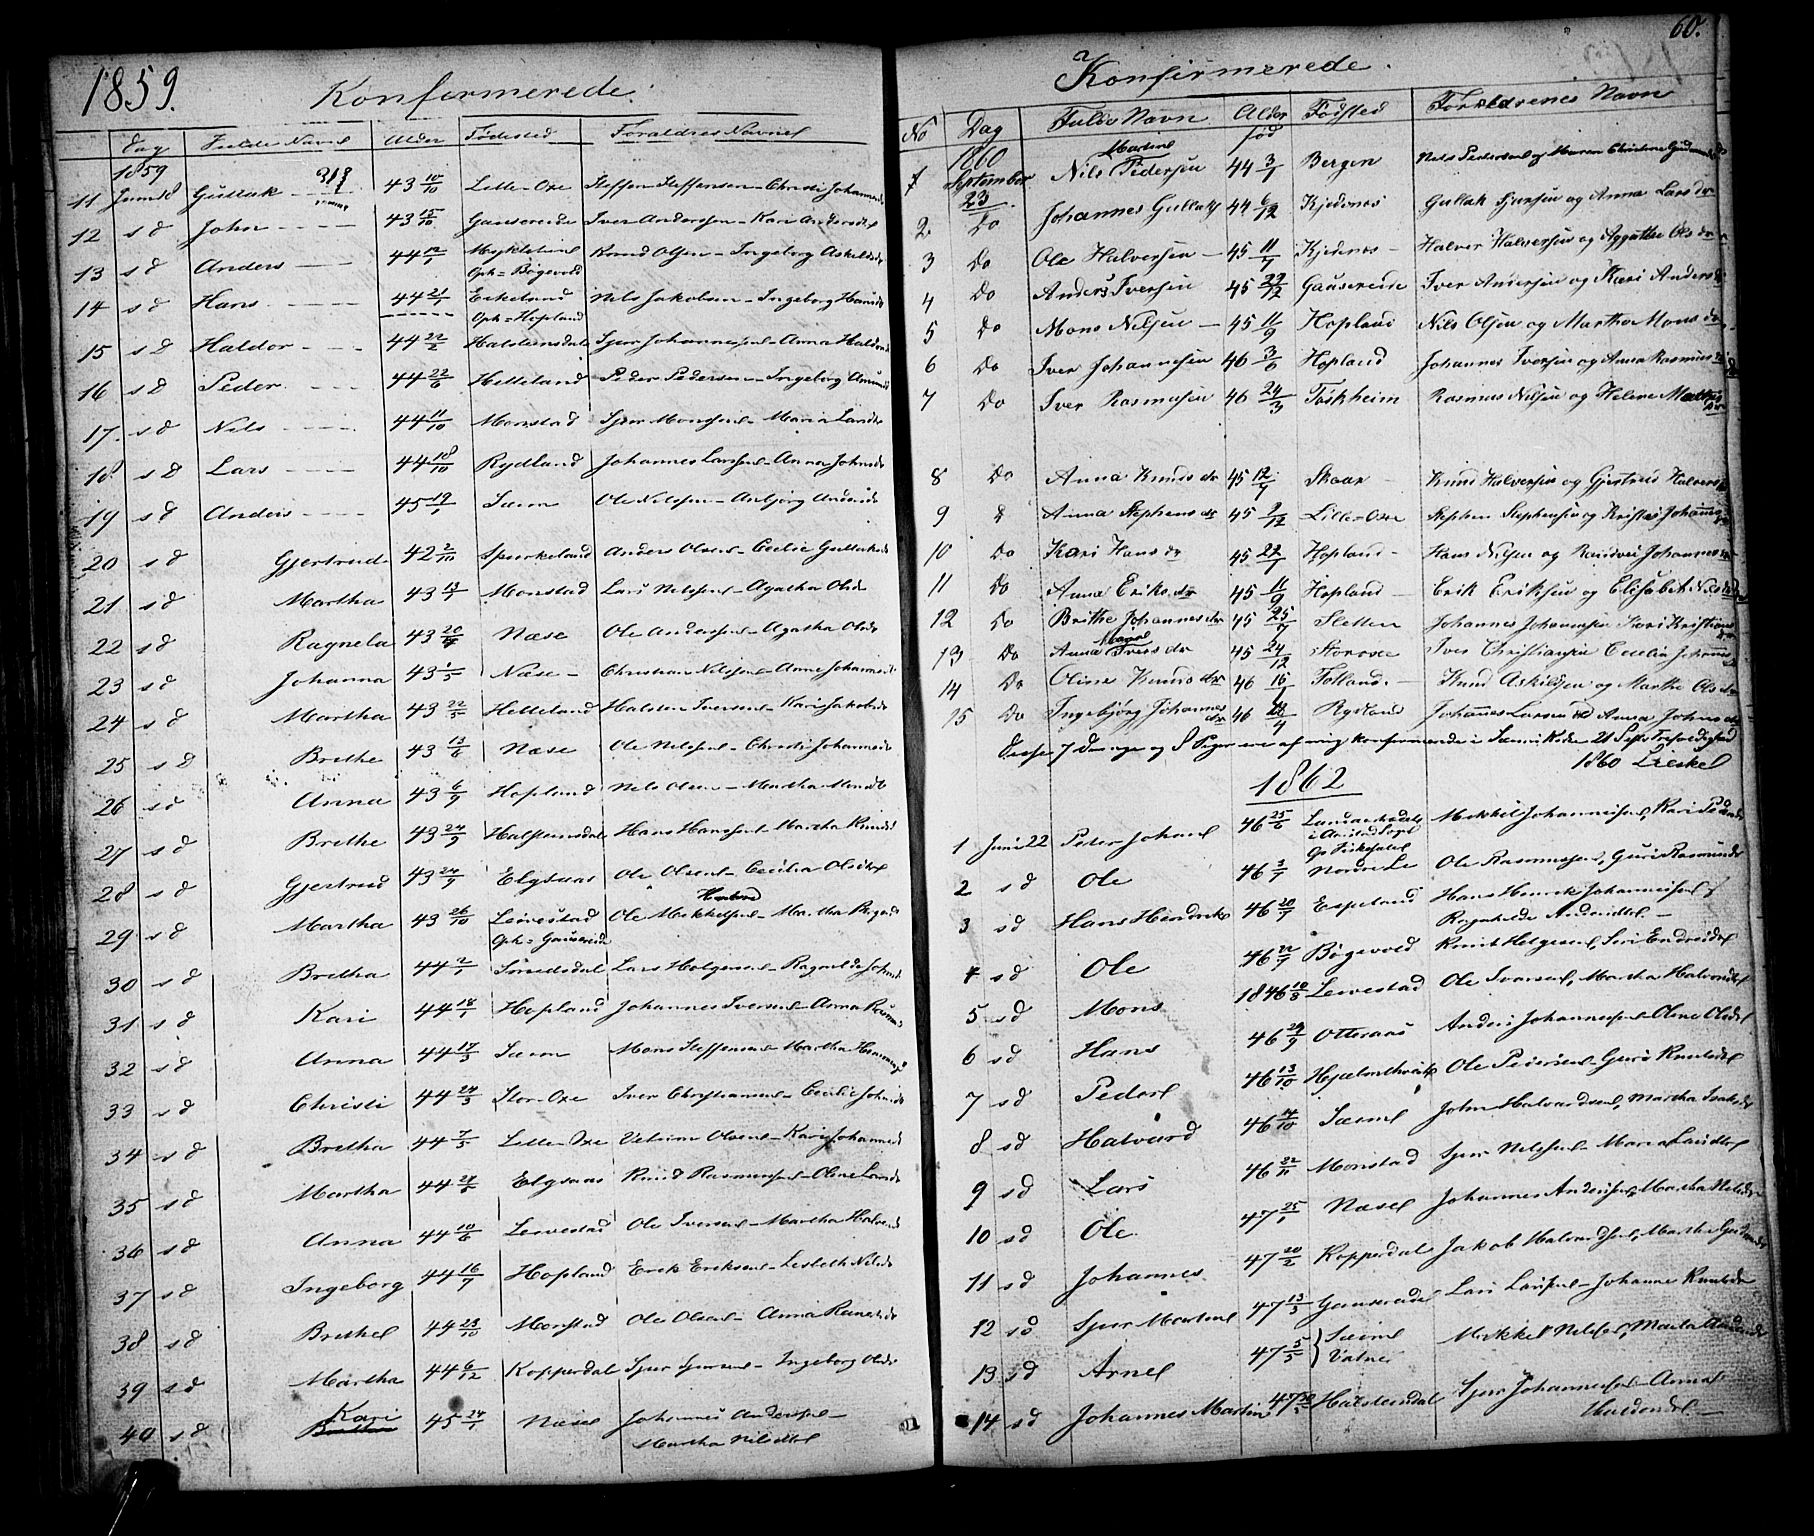 1859.
Konfirmerede.
Dag Fulde Navn Alder Fødested Foraldres Navne
1859
11 Juni Gullak 43 10/10 Lille-Oxe Steffen Steffensen - Christi Johannesd
12 s d John 43 15/10 Gausereide Iver Andersen - Kari Andersdr
13 s d Anders 44 12/1 Knud Olsen - Ingeborg Askelsdr
Oph = Bøgevold
14 s d Hans 44 21/1 Eikeland Nels Jakobsen - Ingeborg Hansdr
Oph = Hopland
15 s d Haldor 44 22/2 Halsteinsdal Sjur Johannesen - Anna Haldorsd
16 s d Peder 44 22/6 Helleland Peder Pedersen - Ingeborg Amunds
17. s d Nils 44 11/10 Monstad Sjur Monsen - Maria Larsdr
18. s d Lars 44 18/10 Rydland Johannes Larsen - Anna Johnsdr
19 s d Anders 45 19/1 Sæem Ole Nilssen - Anbjørg
20 s d Gjertrud 42 2/10 Spurkeland Anders Olsen - Cecilie Gullaksdr
21 s d Martha 43 13/1 Monstad Lars Nilssen - Agatha Olsdr
22 s d Ragnela 43 20/4 Næse Ole Andersen - Agatha Olsdr
23 s d Johanna 43 1/5 Næse - Christian Nilssen - Anne Johannesd
24 s d Martha 43 22/5 Helleland Halsten Iversen - Kari Jakobsdr
25 s d Brethe 43 13/6 Næse Ole Nilssen - Christi Johannesdr
26 s d Anna 43 6/9 Hopland Nils Olsen - Martha Monsdr
27 s d Brethe 43 24/9 Halsteinsdal Hans Hanssen - Martha Knudsd
28 s d Gjertrud 43 24/9 Elgsaas Ole Olsen - Cecilia Olsdtr
29. s d Martha 43 26/10 Leivestad Ole Mikkelsen - Martha
Oph = Gausereide
30 s d Bretha 44 2/1 Lars Helgesen - Ragnilde Johnsd
31 s d Kari 44 18/1 Hopland Johannes Iversen - Anna Rasmusd
32 s d Anna 44 17/3 Sæem Mons Steffensen - Martha
33 s d Christi 44 24/3 Stor-Oxe Iver Christiansen - Cecilie Johnsdr
34 s d Bretha 44 7/5 Lille-Oxe Olsen - Kari Johannesd
35 s d Martha 44 24/5 Elgsaas Knud Rasmussen - Oline Larsdr
36 s d Anna 44 10/6 Leivestad Ole Iversen - Martha Halvorsd
37 s d Ingeborg 44 16/7 Hopland Erik Eriksen - Lisbeth Nilsdr
38 s d Brethe 44 23/10 Monstad Ole Olsen - Anna Rasmusdr
39 s d Martha 44 6/12 Kopperdal Sjur Sjursen - Ingeborg Olsdr
Kari
40 s d 45 24/1 Næse Johannes Andersen -
Martha Nilsdtr
60.
Konfirmerede.
No Dag Fulde Navn Alder Fødsted Forældrenes Navn
født
1 1860 Martine
September Nils Pedersen 44 3/1 Bergen Nels Pedersen og Maren Christine
23
2. Do Johannes Gullaks 44 6/12 Kjednes Gullak Sjursen og Anna Larsdr
3 Do Ole Halversen - 45 11/7 Kjednes - Halver Halversen og Aggathe Olsdr
4 Do Anders Iversen 45 22/12 Gausereide Iver Andersen og Kari Andersdr
5 Do Mons Nilsen - 45 11/9 Hopland Nils Olsen og Martha Monsdr
6 Do Iver Johannesen 46 3/6 Hopland Johannes Iversen og Anna Rasmusdr
7 Do Iver Rasmusen 46 24/3 Taskheim Rasmus Nilsen og Helene
8 Do Anna Knudsdr 45 12/4 Skaar - Knud Halversen og Gjertrud Halversdr
9 D Anna Stephensdr 45 2/12 Lille-Oxe Stephen Stephensen og Kristi Johannesdr
10 Do Kari Hansdr 45 22/1 Hopland - Hans Nilsen og Randvei Johannesdr
11 Do Anna Eriksdr 45 11/9 Hopland - Erik Eriksen og Elisabet Nilsdr
12 Do Brithe Johannesdr 45 25/4 Sletten Johannes Johannesen Kari Kristiansdr
13 Do Anna Iversdr 45 24/12 Storoxe Iver Christiansen Cecelia Johannesdr
14 Do Oline Knudsdr 46 16/1 Totland - Knud Askilsen og Marthe Olsdr
15 Do Ingebjørg Johannesdr 46 18/4 Rydland Johannes Larsen og Anna Johnsdr
Disse 7 Drenge og 8 Piger ere af mig konfirmerede i Sæem Kirke 21 Sept Trefoldighed
1860
1862
1 Juni 22 Peter Johan 46 25/6 Mikkel Johannessen, Kari
2 s d Ole 46 3/7 Nordre Ole Rasmussen, Guri Rasmusdr
3 s d Hans Hendrik 46 20/7 Espeland Hans Henrik Johannessen,
Ragnhilde Andersdtr -
4 s d Ole 46 22/7 Bøgevold Knut Helgesen, Siri Endresdtr
5 s d Mons 1846 10/8 Leivestad Ole Ivarsen, Martha Halvorsdtr
6 s d Hans 46 29/9 Otteraas Anders Johannessen - Oline Olsdtr
7 s d Peder 46 13/10 Hjælmthveit Ole Pedersen - Guri Knutsdtr
8 s d Halvard 46 4/10 Sæem John Halvardsen, Martha Isaksdr
9 s d Lars 46 22/11 Monstad Sjur Nilsen - Maria Larsdtr
10 s d Ole. 47 25/1 Næse Johannes Andersen, Martha Nilsdr
11 s d Johannes 47 20/2 Kopperdal Jakob Halvardsen, Martha
12 s d Sjur Martin 47 13/3 Gausereide Lars Larsen - Johanne Knutsdr
13. s d Arne 47 5/5 Sæem Mikkel Nilsen, Marta
Vatne
14 s d Johannes Martin 47 Halsteinsdal Sjur Johannessen - Anna
Haldorsd -